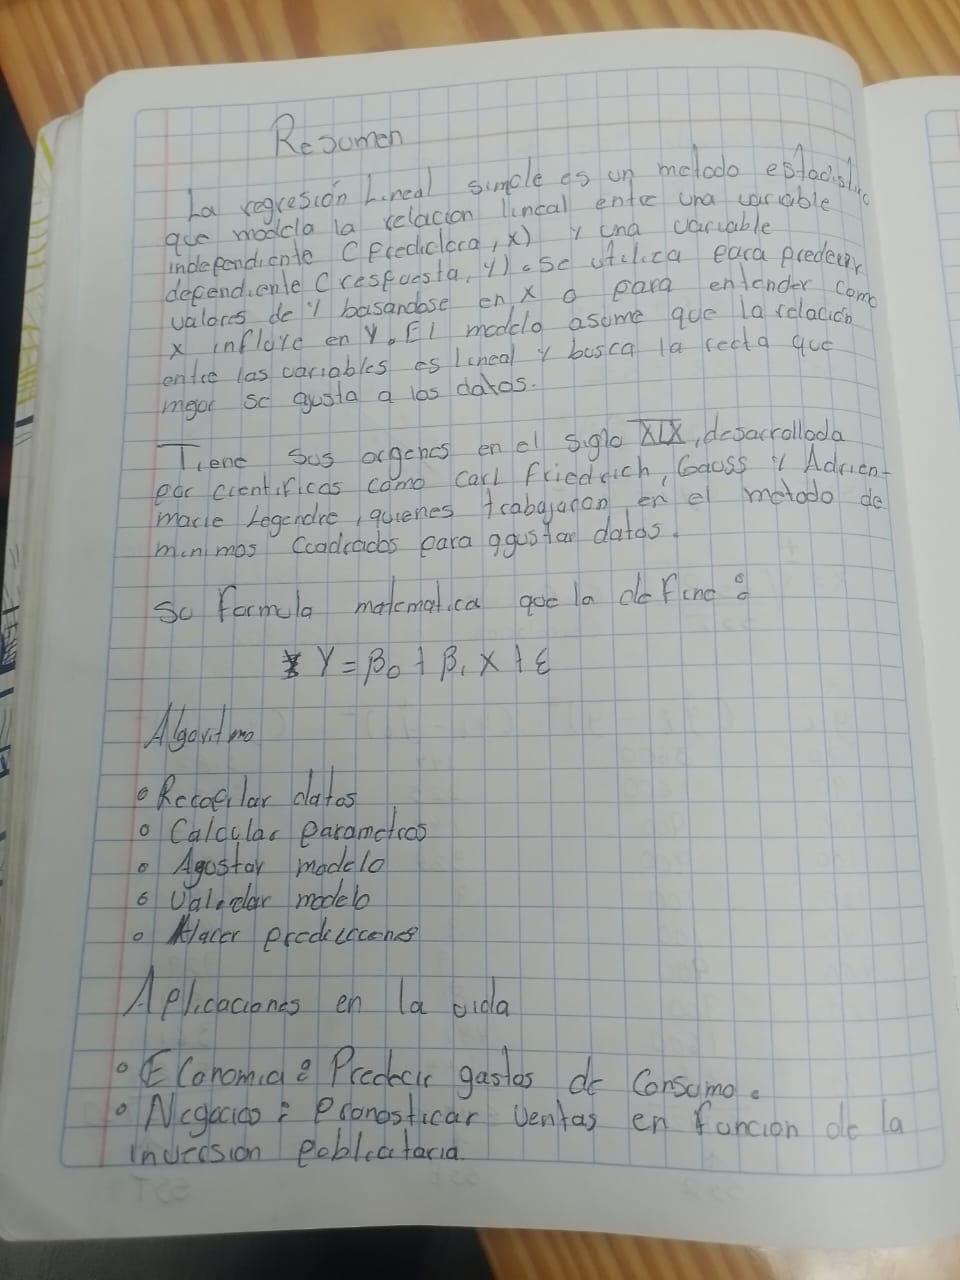 Resumen
La regresión Lineal simple es un metodo estadistic
que modela la relacion lineal entre una variable
independiente (Predictora, x) y una variable
dependiente (respuesta, y). Se utiliza para predecir
valores de y basandose en x o para entender como
x influye en y. El modelo asume que la relación
entre las variables es lineal y busca la recta que
mejor se ajusta a los datos.
Tiene sus orgenes en el siglo XIX, desarrollada
por cientificos como Carl Friedrich, Gauss y Adrien-
marie Legendre, quienes trabajaron en el metodo de
minimos Cuadrados para ajustar datos.
Su formula matematica que la define:
Y = β0 + β1 X + ε
Algoritmo
• Recopilar datos
• Calcular parametros
• Ajustar modelo
• Validar modelo
• Hacer predicciones
Aplicaciones en la vida
• Economia: Predecir gastos de Consumo.
• Negocios: Pronosticar ventas en funcion de la
inversion publicitaria.